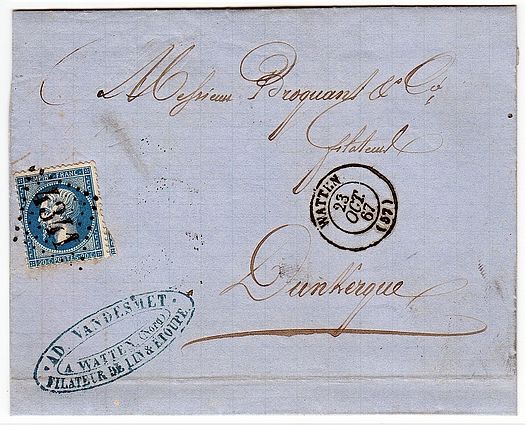 Messieurs Broquant & Cie
filateurs
WATTEN
23
OCT
67
(57)
Dunkerque
EMPIRE FRANC
AD VANDESMET
A WATTEN (Nord)
FILATEUR DE LIN & ETOUPE